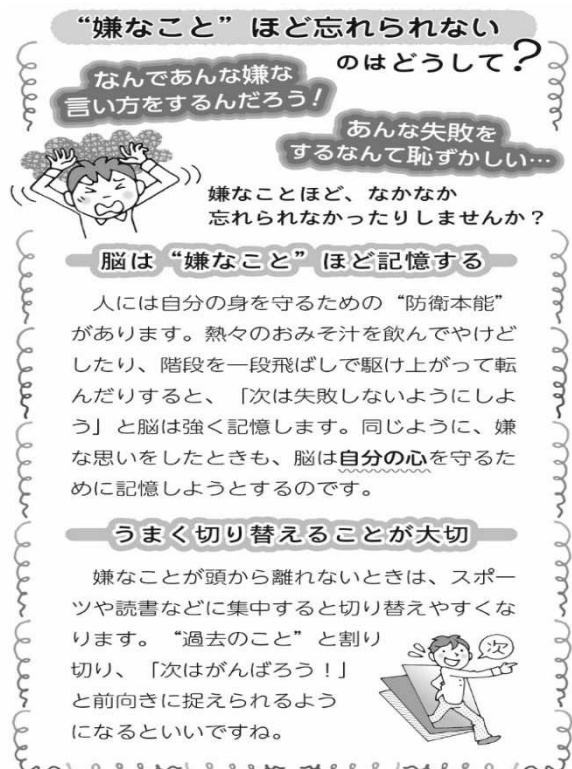 “嫌なこと”ほど忘れられない
のはどうして?
なんであんな嫌な
言い方をするんだろう！
あんな失敗を
するなんて恥ずかしい…
嫌なことほど、なかなか
忘れられなかったりしませんか？
脳は“嫌なこと”ほど記憶する
人には自分の身を守るための“防衛本能”
があります。熱々のおみそ汁を飲んでやけど
したり、階段を一段飛ばしで駆け上がって転
んだりすると、「次は失敗しないようにしよ
う」と脳は強く記憶します。同じように、嫌
な思いをしたときも、脳は自分の心を守るた
めに記憶しようとするのです。
うまく切り替えることが大切
嫌なことが頭から離れないときは、スポー
ツや読書などに集中すると切り替えやすくな
ります。“過去のこと”と割り
切り、「次はがんばろう！」
と前向きに捉えられるよう
になるといいですね。
次